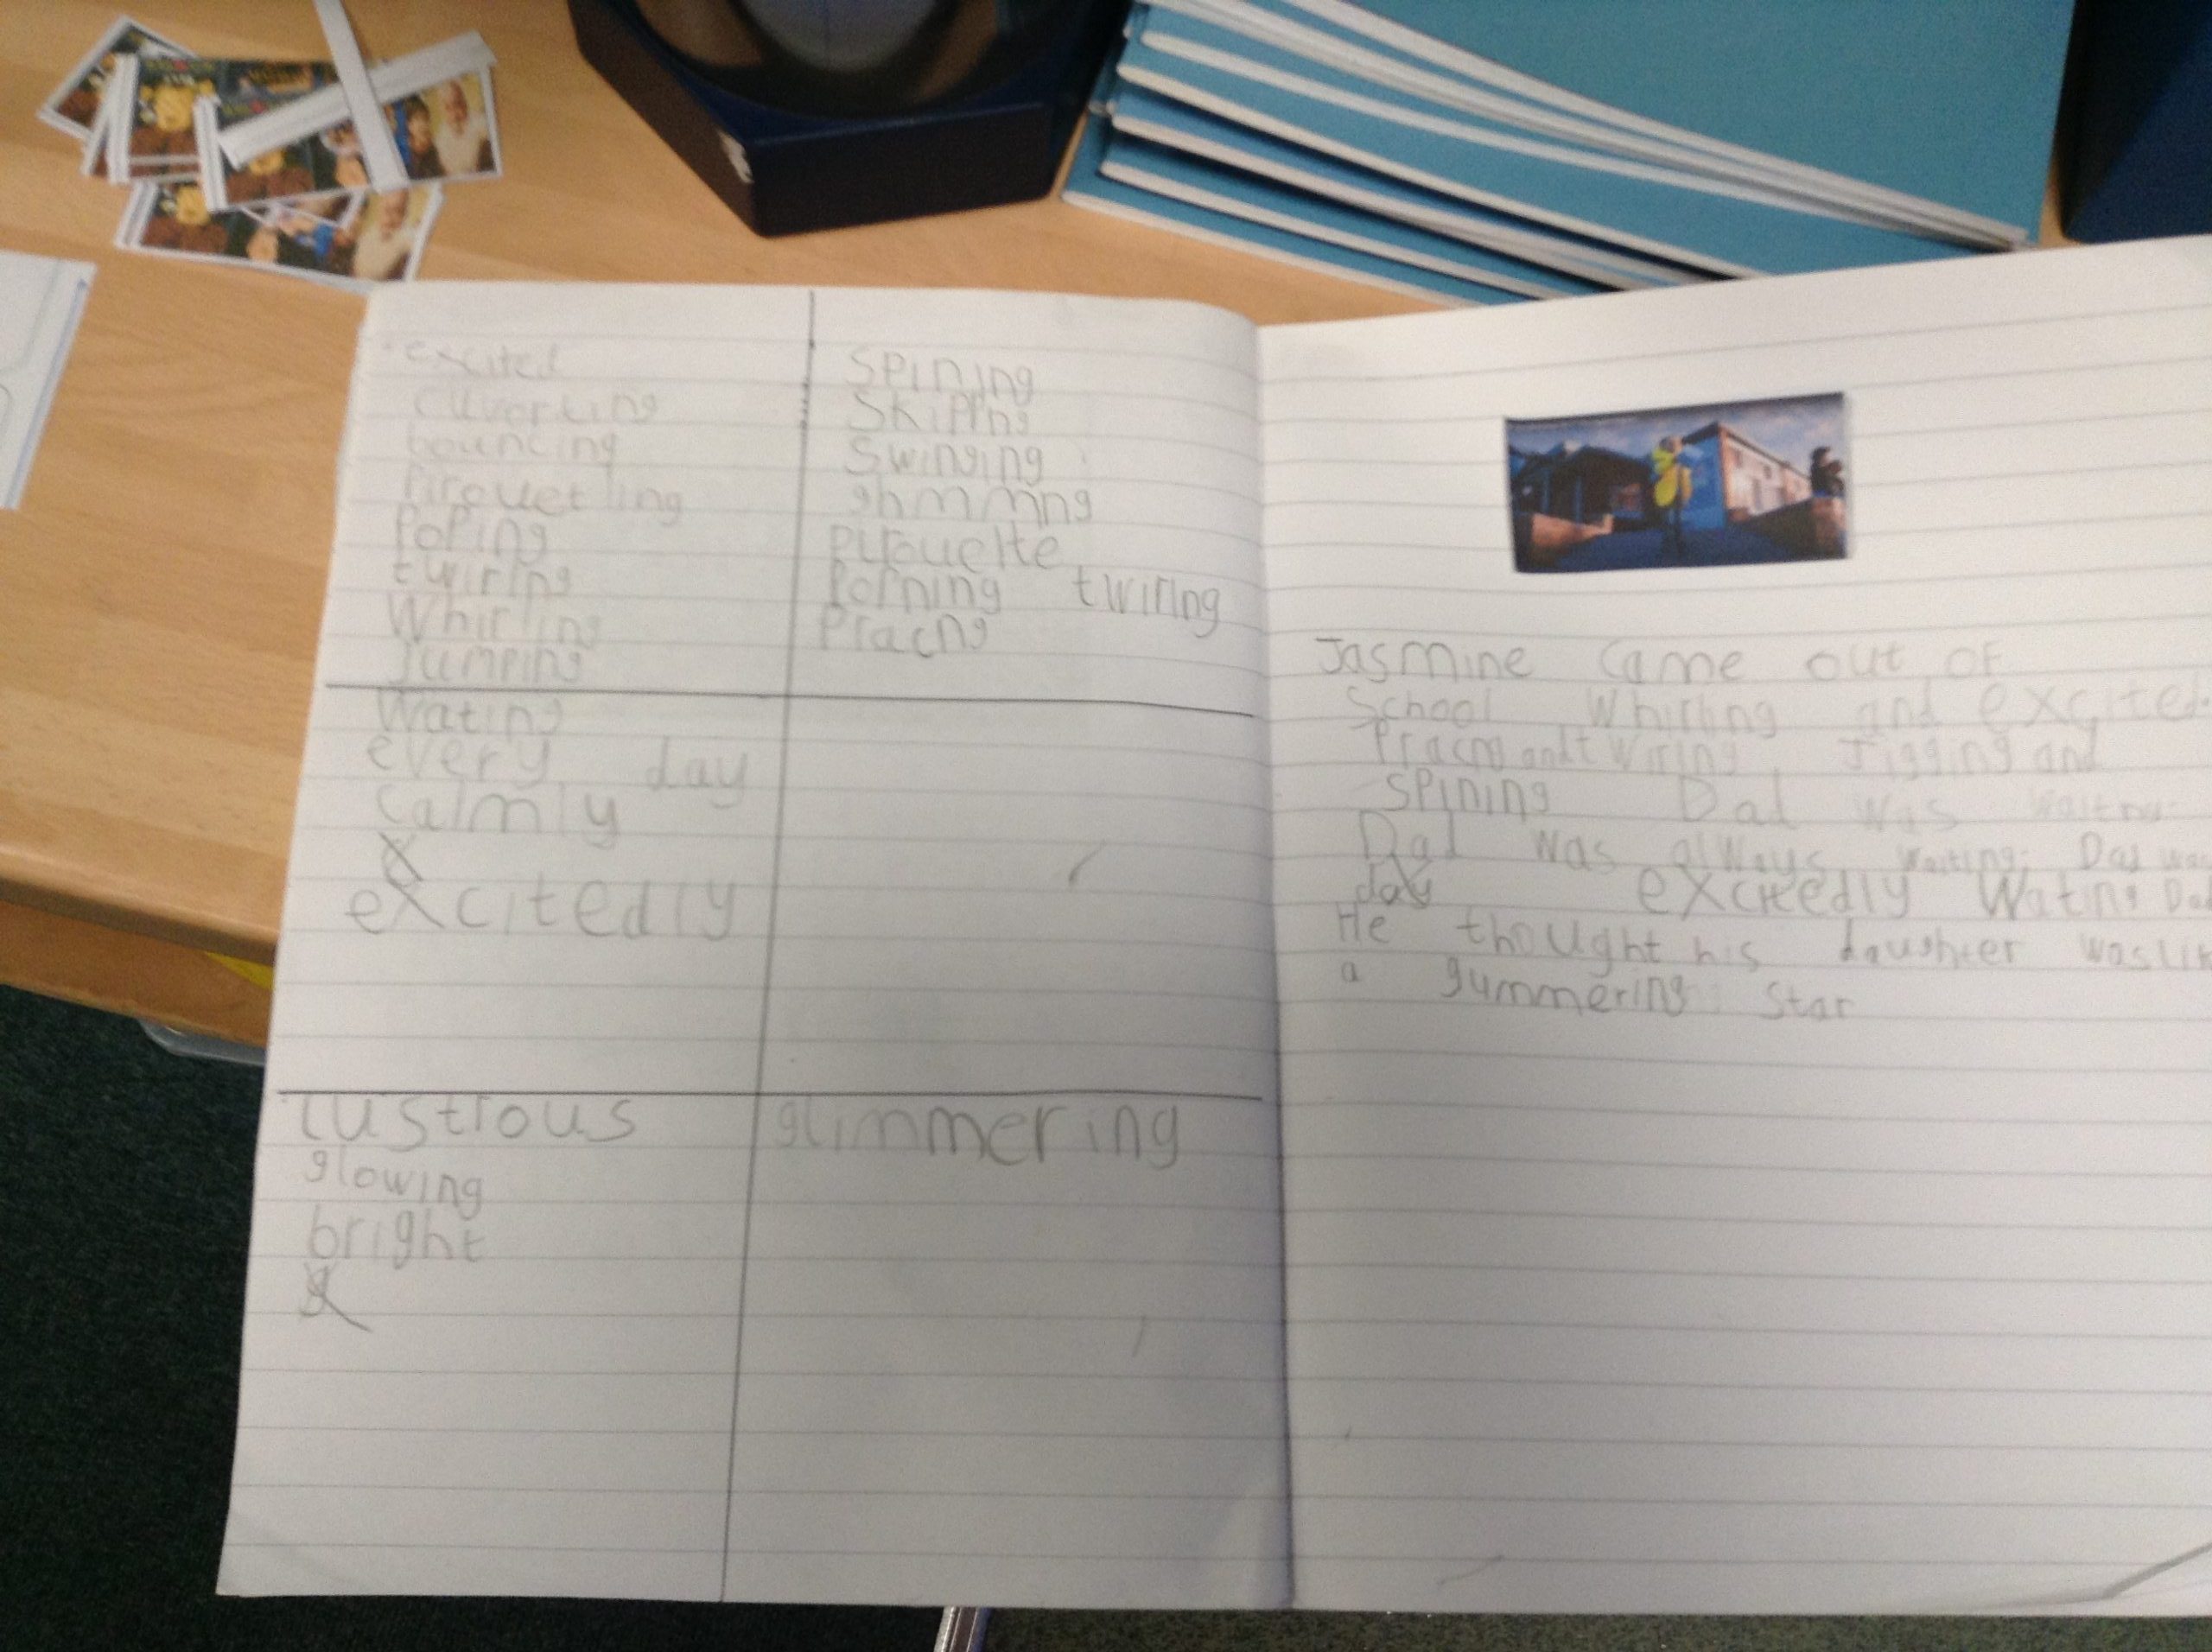 excited
cuvorting
bouncing
Pirouetling
PoPing
twirlng
Whirling
Jumping
SPining
SkiPPng
Swinging
shmmng
pirouelte
PoPning twirlng
Pracng
Wating
every day
calmly
excitedly
lustrous
glowing
bright
glimmering
Jasmine came out OF
School Whirling and excited
Pracng and twirling Jigging and
SPining Dad was
Dad was always waiting. Dad was
day excitedly Wating Dad
He thought his daughter was
a gummering star